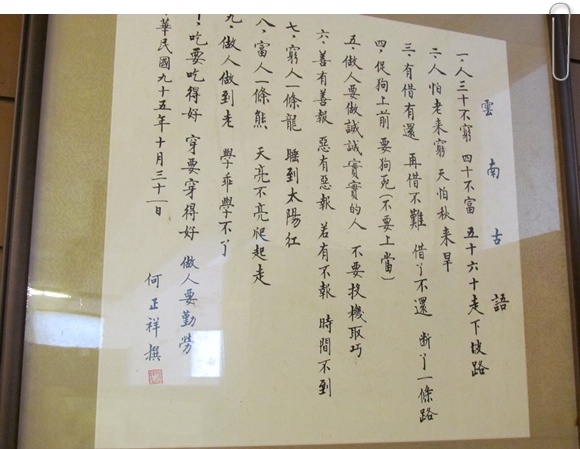 雲南古語
一、人三十不窮 四十不富 五十六十走下坡路
二、人怕老來窮 天怕秋來旱
三、有借有還 再借不難 借了不還 斷了一條路
四、促狗上前 要狗死(不要上當)
五、做人要做誠誠實實的人 不要投機取巧
六、善有善報 惡有惡報 若有不報 時間不到
七、窮人一條龍 睡到太陽紅
八、富人一條熊 天亮不亮爬起走
九、做人做到老 學乖學不了
吃要吃得好 穿要穿得好 做人要勤勞
華民國九十五年十月三十一日
何正祥 撰